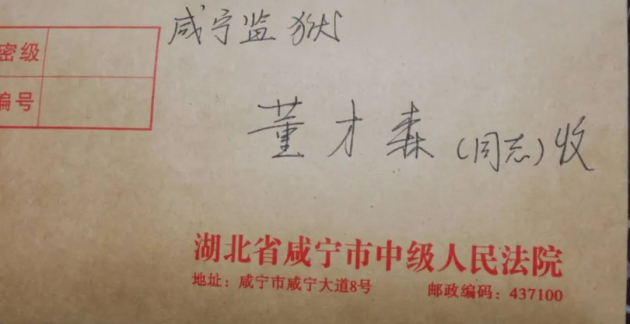 密级
编号
咸宁监狱
董才森(同志)收
湖北省咸宁市中级人民法院
地址：咸宁市咸宁大道8号 邮政编码：437100